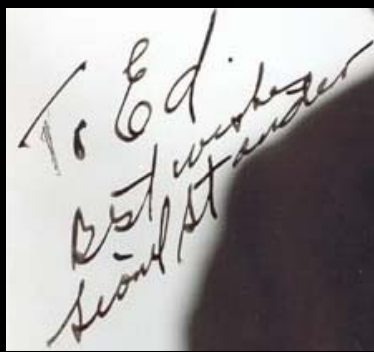 To Ed.
Best wishes
Lionel Stander